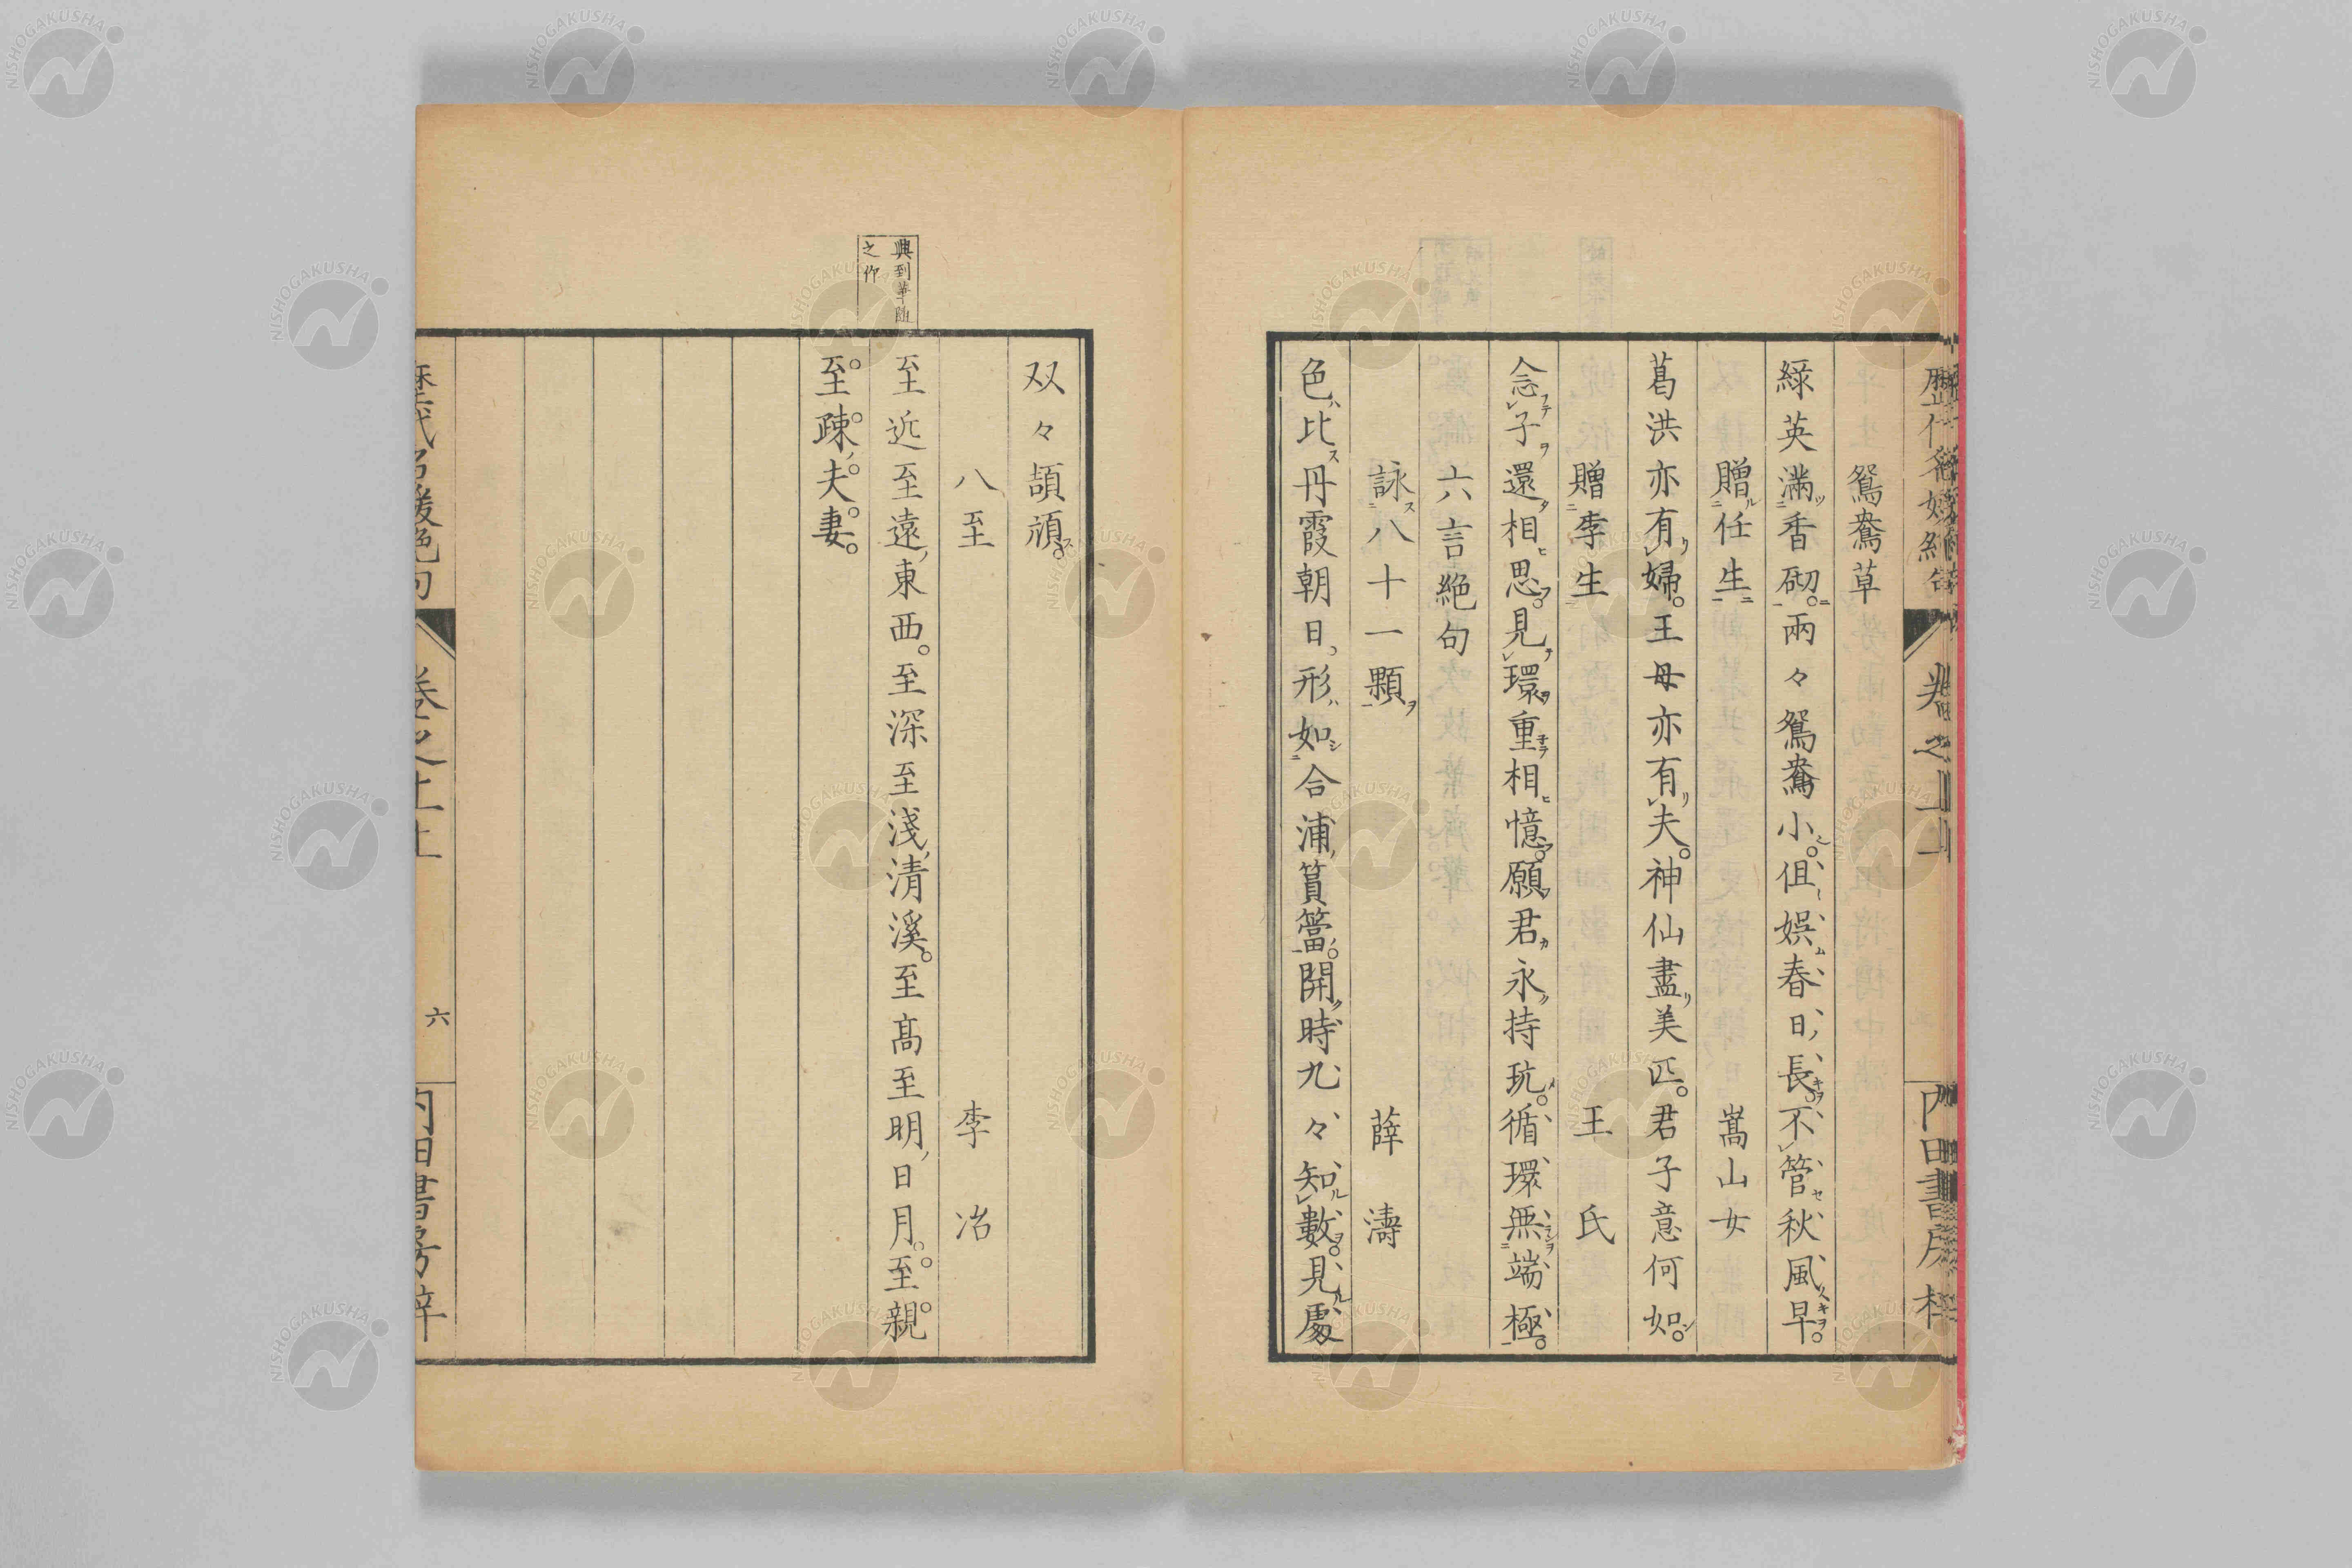 鴛鴦草
綠英滿香砌。兩々鴛鴦小。但娯春日長。不管秋風早。
贈任生 嵩山女
葛洪亦有婦。王母亦有夫。神仙盡美匹。君子意何如。
贈李生 王氏
念子還相思。見環重相憶。願君永持玩。循環無端極。
六言絶句
詠八十一顆 薛濤
色比丹霞朝日、形如合浦篔簹。開時九々知數。見處
双々頡頏。
八至 李冶
至近至遠東西。至深至淺清溪。至高至明日月。至親
至疎夫妻。
興到筆隨
之作
歷代名媛絶句 卷之上上 六 內田書房梓